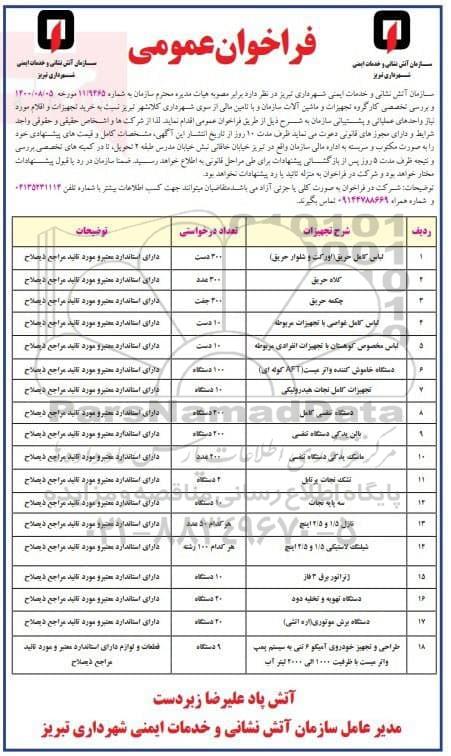 فراخوان عمومی
سازمان آتش نشانی و خدمات ایمنی
شهرداری تبریز
سازمان آتش نشانی و خدمات ایمنی
شهرداری تبریز
سازمان آتش نشانی و خدمات ایمنی شهرداری تبریز در نظر دارد برابر مصوبه هیات مدیره محترم سازمان به شماره ۱۱/۹۴۶۵ مورخه ۱۴۰۰/۰۸/۰۵
و بررسی تخصصی کارگروه تجهیزات و ماشین آلات سازمان و با تامین مالی از سوی شهرداری کلانشهر تبریز نسبت به خرید تجهیزات و اقلام مورد
نیاز واحدهای عملیاتی و پشتیبانی سازمان به شرح ذیل از طریق فراخوان عمومی اقدام نماید، لذا از شرکت ها و اشخاص حقیقی و حقوقی واجد
شرایط و دارای مجوز های قانونی دعوت می نماید ظرف مدت ۱۰ روز از تاریخ انتشار این آگهی، مشخصات کامل و قیمت های پیشنهادی خود
را به صورت مکتوب و سربسته به اداره مالی سازمان واقع در تبریز خیابان خاقانی نبش خیابان مدرس طبقه ۲ تحویل، تا در کمیته های تخصصی بررسی
و نتیجه ظرف مدت ۵ روز پس از بازگشائی پیشنهادات برای طی مراحل قانونی به اطلاع خواهد رسید. ضمنا سازمان در رد یا قبول پیشنهادات
مختار خواهد بود و شرکت در فراخوان به منزله تائید یا رد پیشنهادات نخواهد بود.
توضیحات: شرکت در فراخوان به صورت کلی یا جزئی آزاد می باشد متقاضیان میتوانند جهت کسب اطلاعات بیشتر با شماره تلفن ۰۴۱۳۵۲۳۱۱۱۴
و شماره همراه ۰۹۱۴۴۷۸۸۶۶۹ تماس بگیرند.
ردیف شرح تجهیزات تعداد درخواستی توضیحات
۱ لباس کامل حریق (اورکت و شلوار حریق) ۳۰۰ دست دارای استاندارد معتبر و مورد تائید مراجع ذیصلاح
۲ کلاه حریق ۳۰۰ عدد دارای استاندارد معتبر و مورد تائید مراجع ذیصلاح
۳ چکمه حریق ۳۰۰ جفت دارای استاندارد معتبر و مورد تائید مراجع ذیصلاح
۴ لباس کامل غواصی با تجهیزات مربوطه ۱۰ دست دارای استاندارد معتبر و مورد تائید مراجع ذیصلاح
۵ لباس مخصوص کوهستان با تجهیزات انفرادی مربوطه ۱۰ دست دارای استاندارد معتبر و مورد تائید مراجع ذیصلاح
۶ دستگاه خاموش کننده واتر میست (AFT کوله ای) ۱۰۰ دستگاه دارای استاندارد معتبر و مورد تائید مراجع ذیصلاح
۷ تجهیزات کامل نجات هیدرولیکی ۱۰ دستگاه دارای استاندارد معتبر و مورد تائید مراجع ذیصلاح
۸ دستگاه تنفسی کامل ۲۰۰ دستگاه دارای استاندارد معتبر و مورد تائید مراجع ذیصلاح
۹ بالن یدکی دستگاه تنفسی ۲۰۰ دستگاه دارای استاندارد معتبر و مورد تائید مراجع ذیصلاح
۱۰ ماسک یدکی دستگاه تنفسی ۲۰۰ عدد دارای استاندارد معتبر و مورد تائید مراجع ذیصلاح
۱۱ تشک نجات پرتابل ۲ دستگاه دارای استاندارد معتبر و مورد تائید مراجع ذیصلاح
۱۲ سه پایه نجات ۱۰ دستگاه دارای استاندارد معتبر و مورد تائید مراجع ذیصلاح
۱۳ نازل ۱/۵ و ۲/۵ اینچ هر کدام ۵۰ عدد دارای استاندارد معتبر و مورد تائید مراجع ذیصلاح
۱۴ شیلنگ لاستیکی ۱/۵ و ۲/۵ اینچ هر کدام ۱۰۰ رشته دارای استاندارد معتبر و مورد تائید مراجع ذیصلاح
۱۵ ژنراتور برق ۳ فاز ۱۰ دستگاه دارای استاندارد معتبر و مورد تائید مراجع ذیصلاح
۱۶ دستگاه تهویه و تخلیه دود ۲۰ دستگاه دارای استاندارد معتبر و مورد تائید مراجع ذیصلاح
۱۷ دستگاه برش موتوری (اره آتشی) ۲۰ دستگاه دارای استاندارد معتبر و مورد تائید مراجع ذیصلاح
۱۸ طراحی و تجهیز خودروی آمیکو ۶ تنی به سیستم پمپ ۹ دستگاه قطعات و لوازم دارای استاندارد معتبر و مورد تائید
واتر میست با ظرفیت ۱۰۰۰ الی ۲۰۰۰ لیتر آب مراجع ذیصلاح
ParsNamadData
پایگاه اطلاع رسانی مناقصه و مزایده
۰۲۱-۸۸۳۴۹۶۷۰-۵
آتش پاد علیرضا زبردست
مدیر عامل سازمان آتش نشانی و خدمات ایمنی شهرداری تبریز